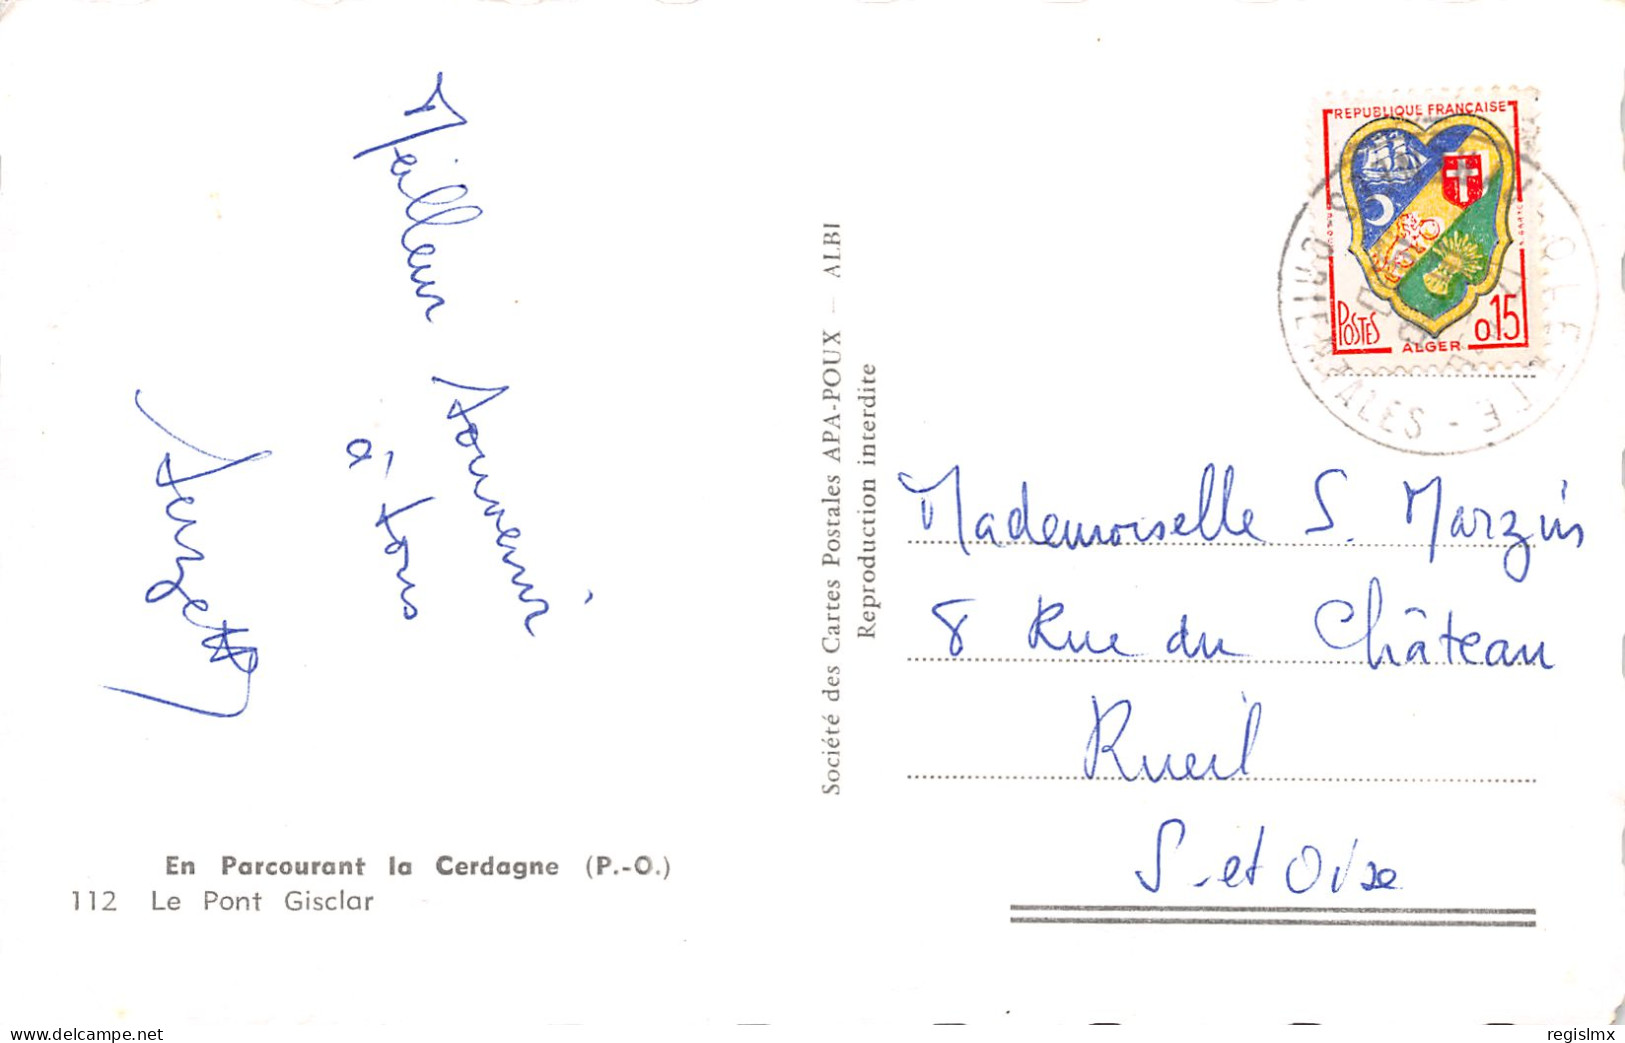 Meilleur souvenir
à tous
En Parcourant la Cerdagne (P.-O.)
112 Le Pont Gisclar
Société des Cartes Postales APA-POUX - ALBI
Reproduction interdite
REPUBLIQUE FRANÇAISE
POSTES
0,15
ALGER
Mademoiselle S. Marzin
8 Rue du Château
Rueil
S.-et Oise
www.delcampe.net
regislmx